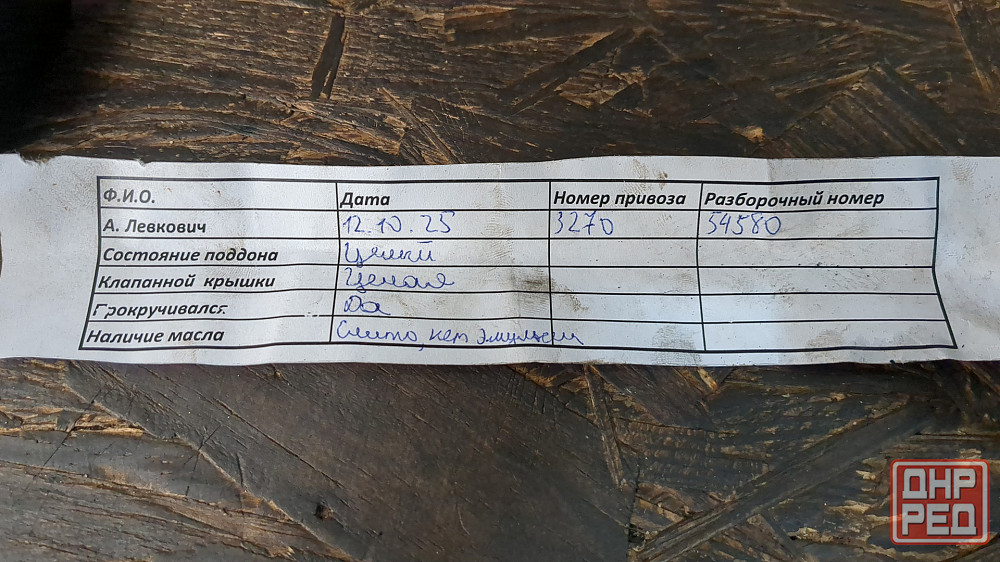 Ф.И.О. Дата Номер привоза Разборочный номер
А. Левкович 12.10.25 3270 54580
Состояние поддона Целый
Клапанной крышки Целая
Прокручивался Да
Наличие масла Слито, нет эмульсии
ДНР
РЕД